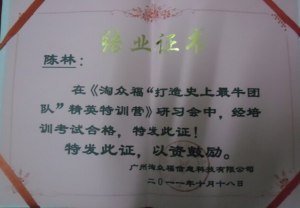 结业证书
陈林：
在《淘众福“打造史上最牛团
队”精英特训营》研习会中，经培
训考试合格，特发此证！
特发此证，以资鼓励。
广州淘众福信息科技有限公司
二〇一一年十月十八日